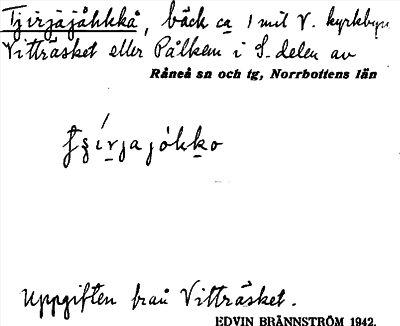 Tjirjäjåhkkå, bäck ca 1 mil V. kyrkbyn
Vitträsket eller Pålkem i S. delen av
Råneå sn och tg, Norrbottens län
tşírjajókko
Uppgiften från Vitträsket.
EDVIN BRÄNNSTRÖM 1942.